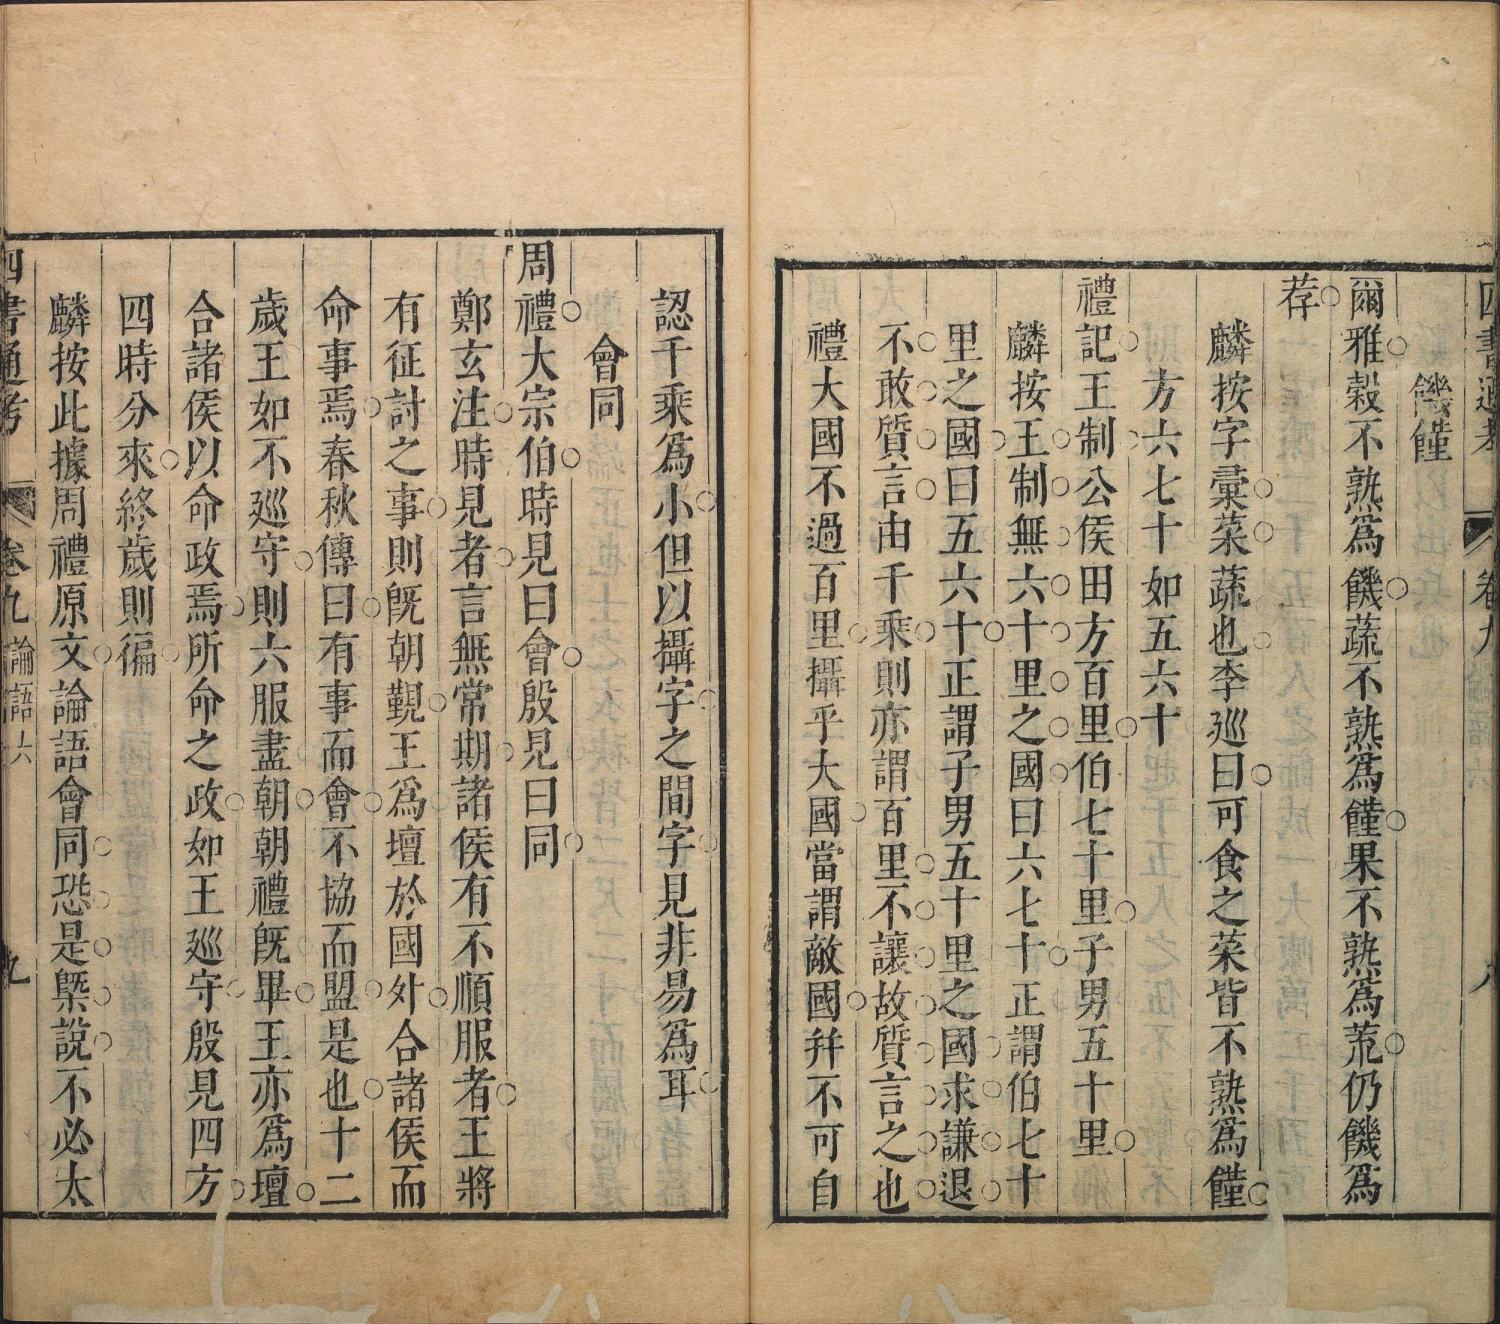 四書通考 卷九 論語六 八
饑饉
爾雅穀不熟爲饑蔬不熟爲饉果不熟爲荒仍饑爲
荐
麟按字彙菜蔬也李巡曰可食之菜皆不熟爲饉
方六七十如五六十
禮記王制公侯田方百里伯七十里子男五十里
麟按王制無六十里之國曰六七十正謂伯七十
里之國曰五六十正謂子男五十里之國求謙退
不敢質言由千乘則亦謂百里不讓故質言之也
禮大國不過百里攝乎大國當謂敵國幷不可自
認千乘爲小但以攝字之間字見非易爲耳
會同
周禮大宗伯時見曰會殷見曰同
鄭玄注時見者言無常期諸侯有不順服者王將
有征討之事則旣朝覲王爲壇於國外合諸侯而
命事焉春秋傳曰有事而會不協而盟是也十二
歲王如不巡守則六服盡朝朝禮旣畢王亦爲壇
合諸侯以命政焉所命之政如王巡守殷見四方
四時分來終歲則徧
麟按此據周禮原文論語會同恐是槩說不必太
四書通考 卷九 論語六 九